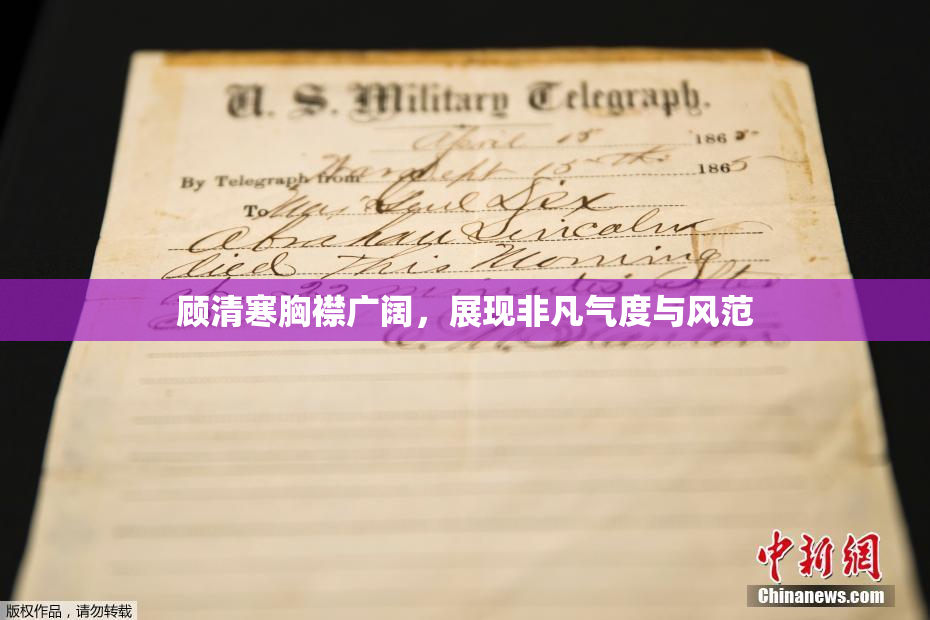 U. S. Military Telegraph.
April 15 1865
By Telegraph from War Dept 15th 1865
To Maj Genl Dix
Abraham Lincoln
died This Morning
22 minutes after
顾清寒胸襟广阔，展现非凡气度与风范
E. M. Stanton
中新网
Chinanews.com
版权作品，请勿转载